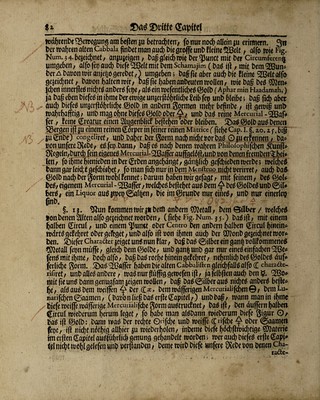 82 Das Dritte Capitel
währende Bewegung am besten zu betrachten, so nur noch allein zu erinnern. In
der wahren alten Cabbala findet man auch die grosse und kleine Welt, also wie Fig.
Num. 54. bezeichnet, anzuzeigen, daß gleich wie der Punct mit der Circumferenz
umgeben, also sey auch diese Welt mit dem Schamajim (das ist, mit dem Wun-
der davon wir anjezo geredet,) umgeben; daß sie aber auch die kleine Welt also
gezeichnet, davon halten wir, daß sie haben andeuten wollen, wie daß des Men-
schen innerstes nichts anders sey, als ein wesentliches Gold (Aphar min Haadamah,)
ja daß eben dieses in seiner der ewig unzerstöhrliche Leib sey und bleibe; daß sich aber
auch dieses unzerstöhrliche Gold in andern Formen mehr befinde, ist gewiß und
wahrhafftig, und mag ohne dieses Gold und das reine Mercurial-Was-
ser, keine Creatur einen Augenblick bestehen oder bleiben. Das Gold aus denen
Bergen ist zu einem reinen Cörper in seiner reinen Matrice (siehe Cap. I. §. 20. 25. biß
zu Ende) congeliret, und daher der Form nach wie das zu erkennen, da-
von unsere Rede, es sey dann, daß es nach denen wahren Philosophischen Kunst-
Regeln, durch sein eigenes Mercurial-Wasser aufgelöset, und von denen fremden Thei-
len, so ihme hemeden in der Erden angehangt, gänzlich geschieden werde; welches
dann gar leicht geschiehet, so man sich nur in dem Menstruo nicht verirret, auch das
Gold nach der Form wohl kennet: darum haben wir gesagt, mit seinem, des Gol-
des, eigenem Mercurial-Wasser, welches bestehet aus dem des Goldes und Sil-
bers, ein Liquor aus zwey Saltzen, die im Grunde nur eines, und nur einerley
sind.
§. 15. Nun kommen wir zu dem andern Metall, dem Silber, welches
von denen Alten also gezeichnet worden, (siehe Fig. Num. 55.) das ist, mit einem
halben Circul, und einem Punct oder Centro den andern halben Circul hinein-
wärts gekehret oder gebogen, und also ist von ihnen auch der Mond gezeichnet wor-
den. Dieser Character zeiget uns nun klar, daß das Silber ein gantz vollkommenes
Metall seyn müsse, gleich dem Golde, und gantz und gar nur eines einfachen We-
sens mit ihme, doch also, daß das rothe hinein gekehret, nehmlich des Goldes äus-
serliche Form. Das Wasser haben die alten Cabbalisten gleichfalls also characte-
risiret, und alles andere, was nur flüssig gewesen ist, ja solches auch den Wo-
mit sie uns dann genugsam zeigen wollen, daß das Silber aus nichts anders beste-
he, als aus dem weissen der Cæ. dem wässerigen Mercurialischem, dem Lu-
narischen Saamen, (davon ließ das erste Capitel,) und daß, wann man in ihme
diese weisse wässerige Mercurialische Form auskratzet, das ist, den äussern halben
Circul wiederum heraus leget, so habe man alsdann wiederum diese Figur
das ist Gold: dann was der rothe Erische und weisse Erische oder Saamen
sey, ist nicht nöthig allhier zu wiederhohlen, indeme diese höchstwichtige Materie
im ersten Capitel ausführlich genung gehandelt worden: wer auch dieses erste Capi-
tel nicht wohl gelesen und verstanden, deme wird diese unsere Rede von denen Cha-
racte-
NB
NB